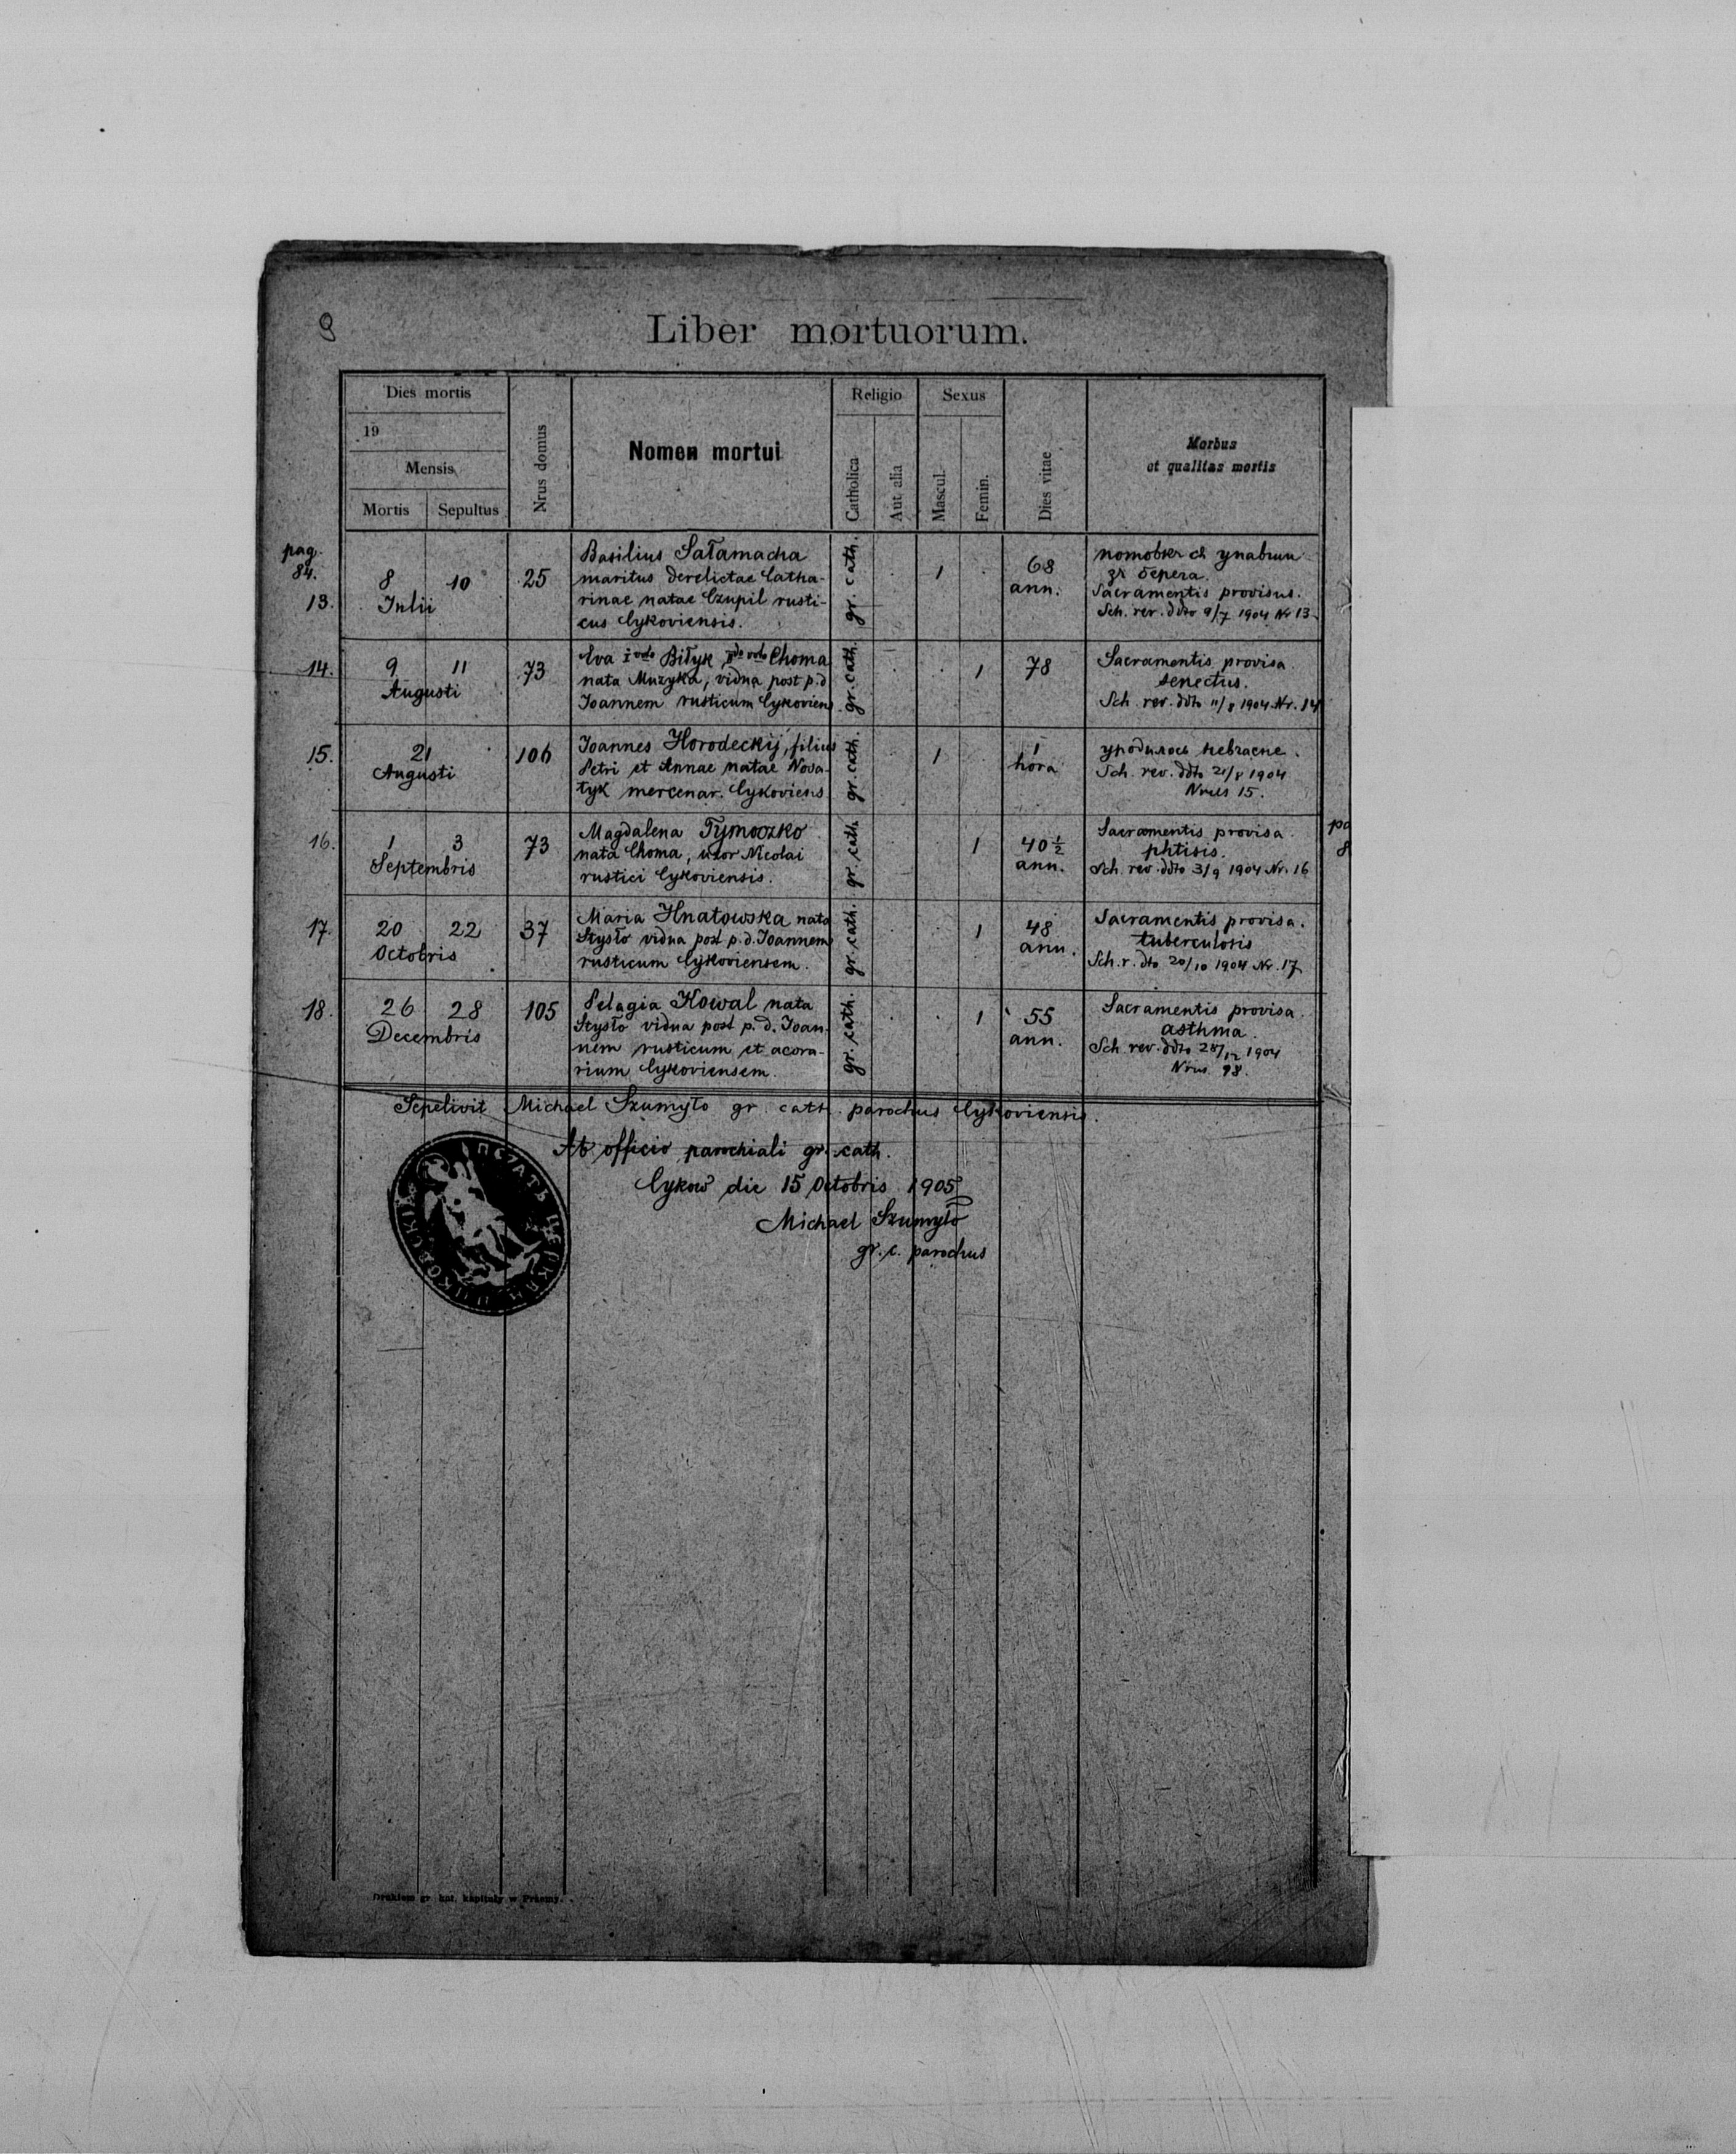 9
Liber mortuorum.
Dies mortis
19
Mensis
Mortis
Sepultus
Nrus domus
Nomen mortui
Religio
Catholica
Aut alia
Sexus
Mascul.
Femin.
Dies vitae
Morbus
et qualitas mortis
pag.
84.
13.
8 10
Julii
25
Basilius Sałamacha
maritus derelictae Catha-
rinae natae Czupil rusti-
cus Cykoviensis.
gr. cath.
1
68
ann.
зг берега.
Sacramentis provisus.
Sch. rev. ddto 9/7 1904 Nr 13
14.
9 11
Augusti
73
Eva I voto Biłyk, IIdo voto Choma
nata Muzyka, vidua post p.d
Joannem rusticum Cykoviens.
gr. cath.
1
78
Sacramentis provisa.
senectus.
Sch. rev. ddto 11/8 1904 Nr. 14
15.
21
Augusti
106
Joannes Horodeckij, filius
Petri et Annae natae Nova-
tyk mercenar. Cykoviens
gr. cath.
1
1
hora
уродилось
Sch. rev. ddto 21/8 1904
Nrus 15.
16.
1 3
Septembris
73
Magdalena Tymoczko
nata Choma, uxor Nicolai
rustici Cykoviensis.
gr. cath.
1
40 1/2
ann.
Sacramentis provisa.
phtisis.
Sch. rev. ddto 3/9 1904 Nr. 16
17.
20 22
Octobris
37
Maria Hnatowska nata
Stysło vidua post p.d. Joannem
rusticum Cykoviensem.
gr. cath.
1
48
ann.
Sacramentis provisa.
tuberculosis
Sch. r. dto 20/10 1904 Nr. 17
18.
26 28
Decembris
105
Pelagia Kowal nata
Stysło vidua post p.d. Joan-
nem rusticum et acora-
rium Cykoviensem.
gr. cath.
1
55
ann.
Sacramentis provisa.
asthma.
Sch. rev. ddto 1904
Nrus
Sepelivit Michael Szumyło gr. cath. parochus Cykoviensis.
Ab officio parochiali gr. cath.
Cykow die 15 Octobris 1905
Michael Szumyło
gr. c. parochus
Drukiem gr. kat. kapituły w Przemy.